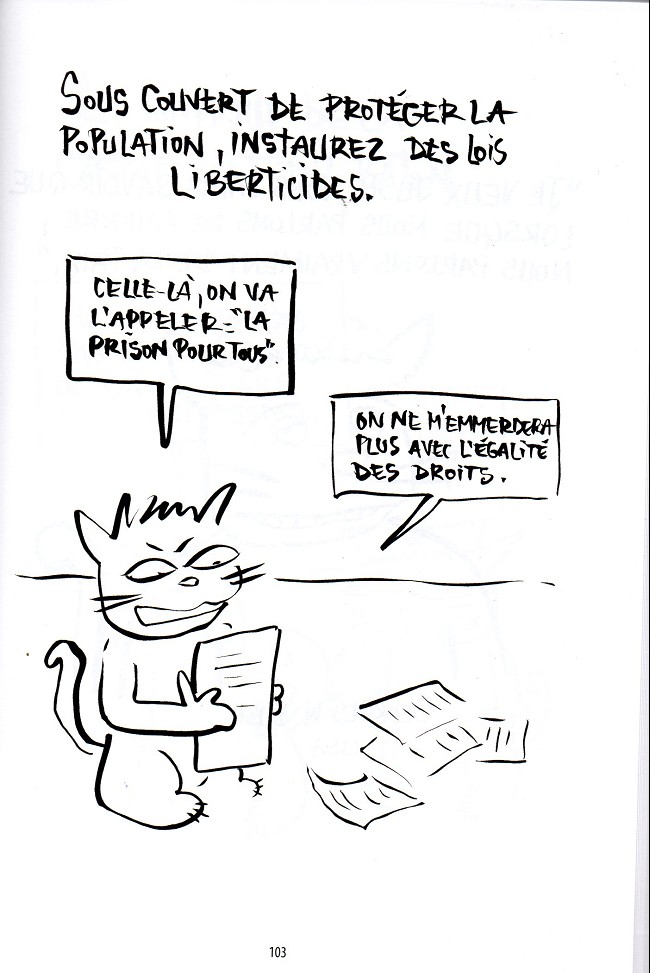 SOUS COUVERT DE PROTÉGER LA
POPULATION, INSTAUREZ DES LOIS
LIBERTICIDES.
CELLE-LÀ, ON VA
L'APPELER "LA
PRISON POUR TOUS".
ON NE M'EMMERDERA
PLUS AVEC L'ÉGALITÉ
DES DROITS.
103